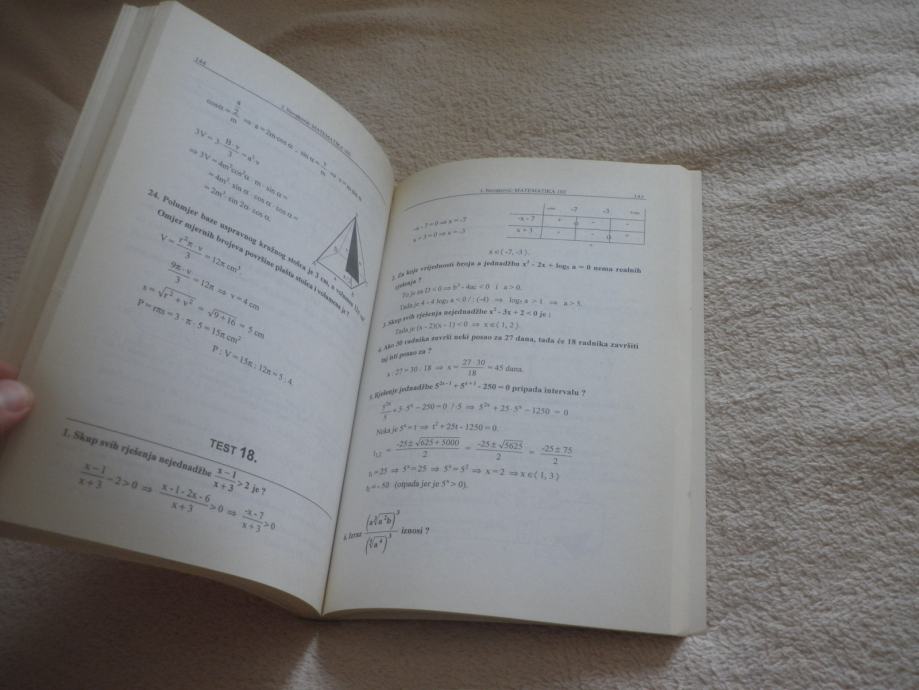 144
J. Novaković: MATEMATIKA 102
cosα = a/2 / m ⇒ a = 2m·cos α , sin α = v/m ⇒ v = m·sin α
3V = 3 · B · v / 3 = a² v
⇒ 3V = 4m²cos²α · m · sin α =
= 4m³· sin α · cos α · cos α =
= 2m³· sin 2α · cos α.
24. Polumjer baze uspravnog kružnog stošca je 3 cm, a volumen 12π cm³
Omjer mjernih brojeva površine plašta stošca i volumena je ?
V = r²π · v / 3 = 12π cm³ .
9π · v / 3 = 12π ⇒ v = 4 cm
s = √(r² + v²) = √(9 + 16) = 5 cm
P = rπs = 3 · π · 5 = 15π cm²
P : V = 15π : 12π = 5 : 4.
TEST 18.
1. Skup svih rješenja nejednadžbe (x − 1)/(x + 3) > 2 je ?
(x − 1)/(x + 3) − 2 > 0 ⇒ (x - 1 - 2x - 6)/(x + 3) > 0 ⇒ (-x - 7)/(x + 3) > 0
MATEMATIKA 102
-x - 7 = 0 ⇒ x = -7
x + 3 = 0 ⇒ x = -3
-∞ -7 -3 +∞
-x - 7 + 0 - -
x + 3 - - 0 +
x ∈ ⟨ -7, -3 ⟩
2. Za koje vrijednosti broja a jednadžba x² - 2x + log₅ a = 0 nema realnih
rješenja ?
To je za D < 0 ⇒ b² - 4ac < 0 i a > 0.
Tada je 4 - 4 log₅ a < 0 / : (-4) ⇒ log₅ a > 1 ⇒ a > 5.
3. Skup svih rješenja nejednadžbe x² - 3x + 2 < 0 je :
Tada je (x - 2)(x - 1) < 0 ⇒ x ∈ ⟨ 1, 2 ⟩.
4. Ako 30 radnika završi neki posao za 27 dana, tada će 18 radnika završiti
taj isti posao za ?
x : 27 = 30 : 18 ⇒ x = 27 · 30 / 18 = 45 dana.
5. Rješenje jednadžbe 5²ˣ⁻¹ + 5ˣ⁺¹ - 250 = 0 pripada intervalu ?
5²ˣ/5 + 5 · 5ˣ − 250 = 0 / · 5 ⇒ 5²ˣ + 25 · 5ˣ − 1250 = 0
Neka je 5ˣ = t ⇒ t² + 25t - 1250 = 0.
t₁,₂ = (-25 ± √(625 + 5000))/2 = (-25 ± √5625)/2 = (-25 ± 75)/2
t₁ = 25 ⇒ 5ˣ = 25 ⇒ 5ˣ = 5² ⇒ x = 2 ⇒ x ∈ ⟨ 1, 3 ⟩
t₂ = - 50 (otpada jer je 5ˣ > 0).
6. Izraz iznosi ?